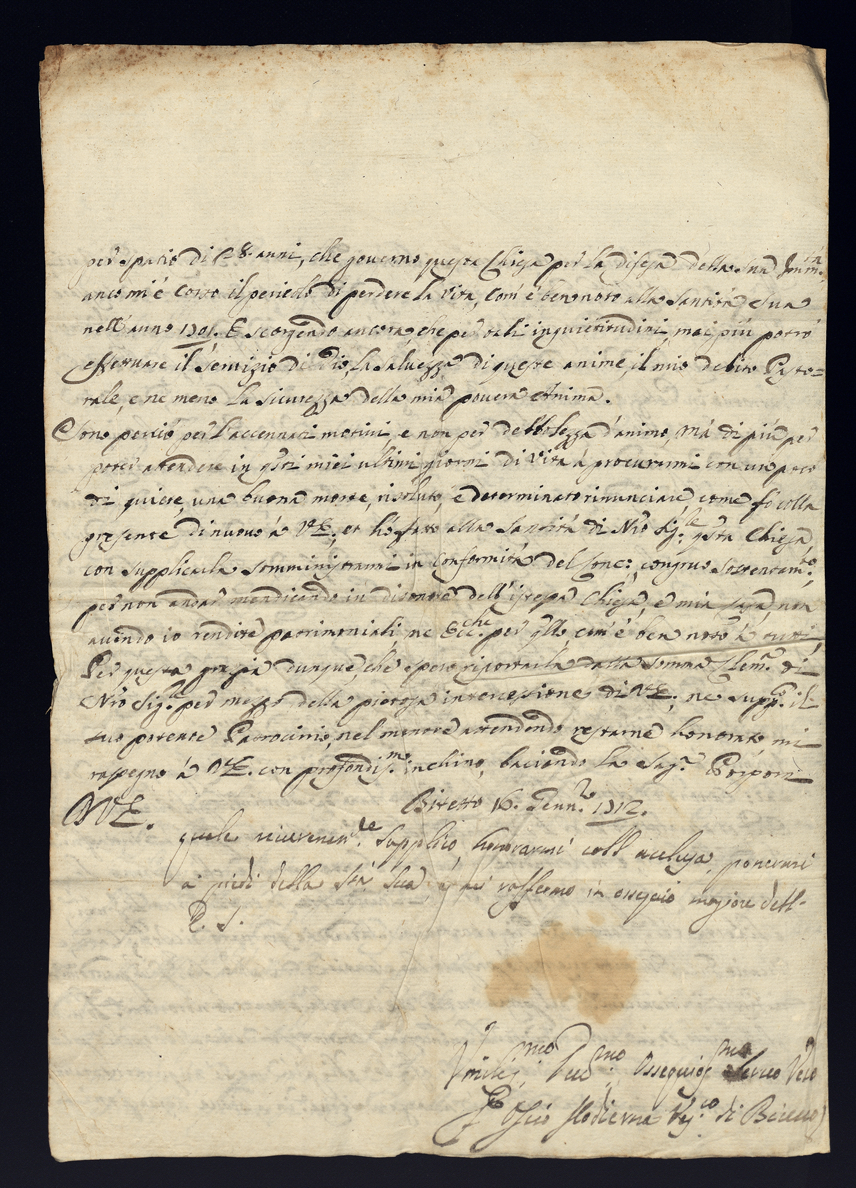 per spatio di 28. anni, che governo questa Chiesa per la difesa della sua Imm.tà
anco mi è corso il pericolo di perdere la vita, com' è ben noto alla Santità Sua
nell'anno 1701. E scorgendo ancora, che per tali inquietitudini, mai più potrò
effettuare il servizio di Dio, la salvezza di queste anime, il mio debito Pasto=
rale, e ne meno la sicurezza della mia povera Anima.
Sono perciò per l'accennati motivi, e non per debbolezza d'animo, mà di più per
poter attendere in q.sti miei ultimi giorni di vita à procurarmi con un poco
di quiete, una buona morte, risoluto, e determinato rinunciare come fò colla
presente di nuovo à V.E.; et hò fatto alla Santità di N'ro Sig.re q.sta Chiesa
con supplicarla somministrarmi in conformità del Conc: congruo sostentam.to,
per non andar mendicando in disonore dell'istessa Chiesa, e mia casa, non
avendo io rendite patrimoniali, ne Ecc.che per q.llo com'è ben noto à tutti,
Per questa grazia dunque, che spero riportarla dalla somma Clem.a di
N'ro Sig.re per mezzo della pietosa intercessione di V.E.; ne supp.co il
suo potente Patrocinio, nel mentre attendendo restarne honorato mi
rassegno à V.E. con profondis.mo inchino, baciando la Sag.a Porpora
Bitetto 16. Genn.ro 1712.
D.V.E.
quale riverentem.te supplico, honorarmi coll' acclusa, ponermi
a piedi della S.tà Sua, e mi raffermo in ossequio magiore dell.
E. S.
Umiliss.mo Dev.mo Ossequios.mo Servo Vero
Vesc.co di Bitetto